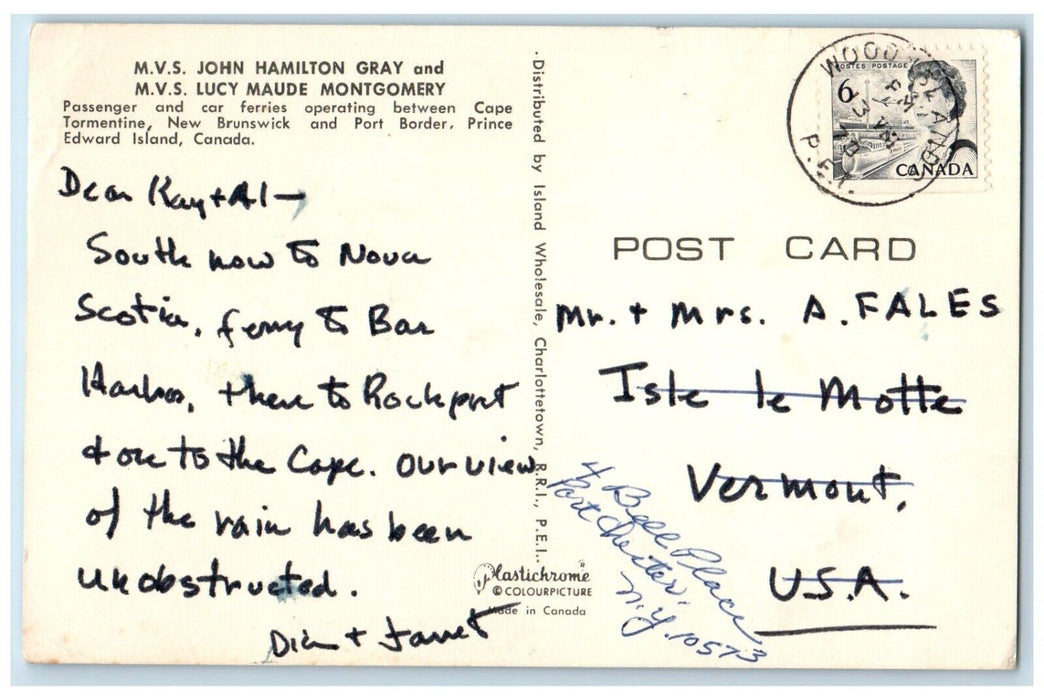 M.V.S. JOHN HAMILTON GRAY and
M.V.S. LUCY MAUDE MONTGOMERY
Passenger and car ferries operating between Cape
Tormentine, New Brunswick and Port Border, Prince
Edward Island, Canada.
Dear Kay + Al —
South now to Nova
Scotia, ferry to Bar
Harbor, thence to Rockport
+ on to the Cape. Our view
of the rain has been
unobstructed.
Dick + Janet
.Distributed by Island Wholesale, Charlottetown, R.R.I., P.E.I..
Plastichrome
© COLOURPICTURE
Made in Canada
POSTES POSTAGE
6
CANADA
WOOD ISLANDS
PM
13
70
P.E.I.
POST CARD
Mr. + Mrs. A. FALES
Isle le Motte
Vermont,
U.S.A.
4 Bell Place
Port Chester,
N.Y. 10573